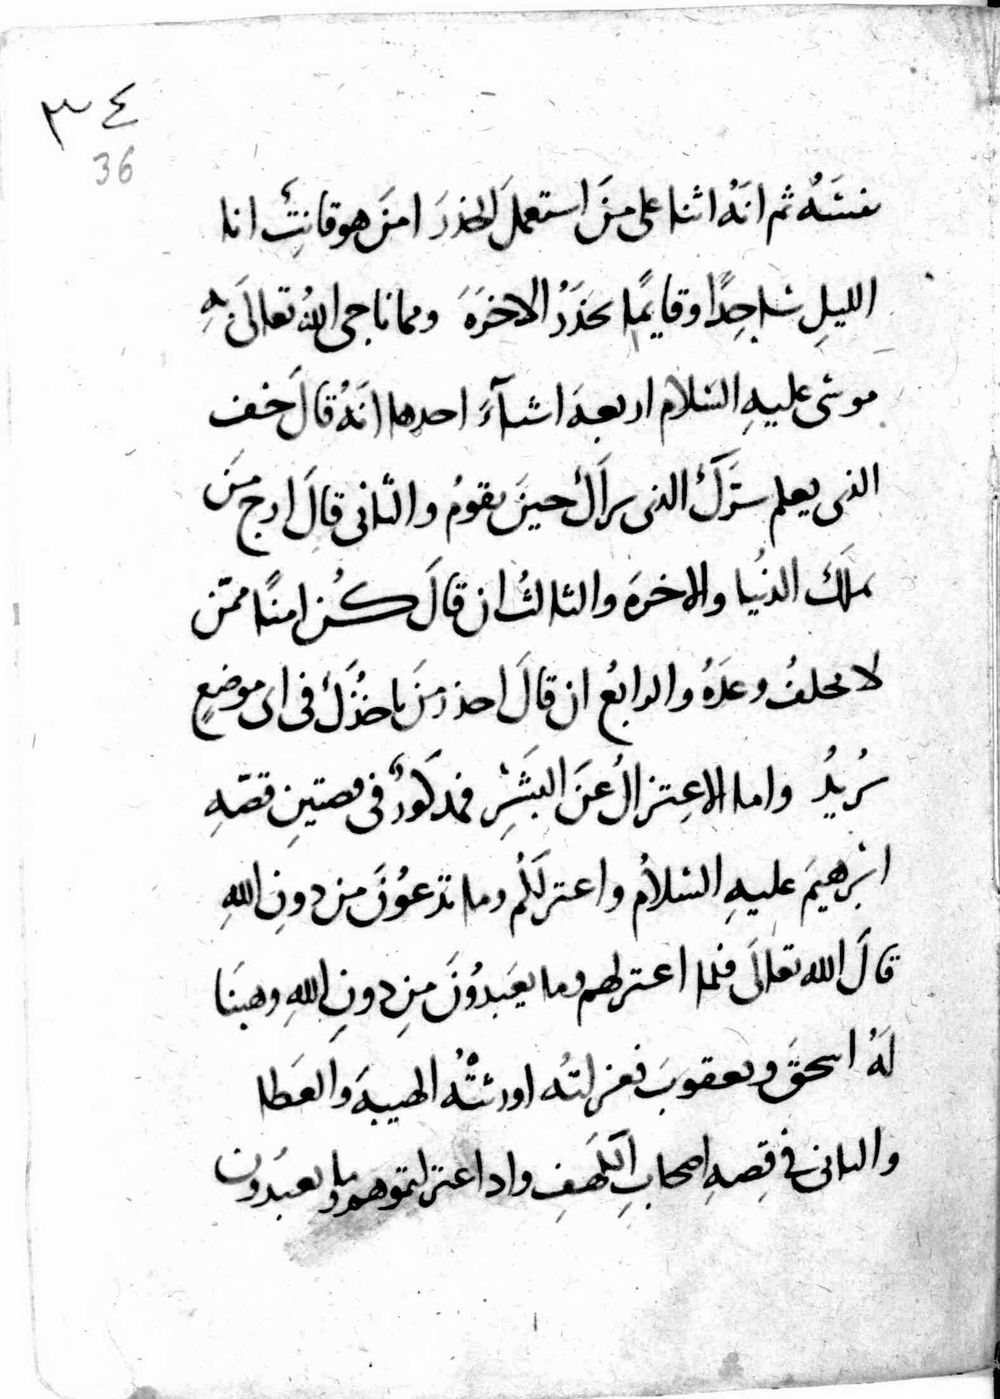 ٣٤
36
نفسَهُ ثم انهُ اثنا على منَ استعملَ الحذرَ امنَ هو قانِتٌ انا
الليلِ ساجِدًا وقايمًا يحذَرُ الاخرَهَ ومما ناجى اللهُ تعالَى بِهِ
موسَى عليهِ السلام اربعهَ اشياءَ احدها انهُ قالَ خف
الذى يعلم سرَّكَ الذى يراكَ حينَ تقومُ والثانى قالَ ارج منَ
يملكَ الدنُيا والاخرهَ والثالثُ ان قالَ كُن امنًا ممّن
لا يخلفُ وعدَهُ والرابعُ ان قالَ احذر منَ ياخذُكَ فى اى موضعٍ
يُريدُ واما الاعِتزالُ عنَ البَشَرِ فمذكورٌ فى قصتينِ قصّهِ
ابرهيمَ عليهِ السلامُ واعتزلَكُم وما تدعوُنَ من دونِ اللهِ
قالَ الله تعالَى فلما اعتزلهم وما يعَبدوُنَ مِن دونِ اللهِ وهبَنا
لهُ اسحقَ ويعقوبَ فعزلتُه اورثتْهُ الهيبهَ والعَطا
والثانى فى قِصهِ اصحابِ الكَهَفِ واذ اعتزلتموهم وما يعبدُون